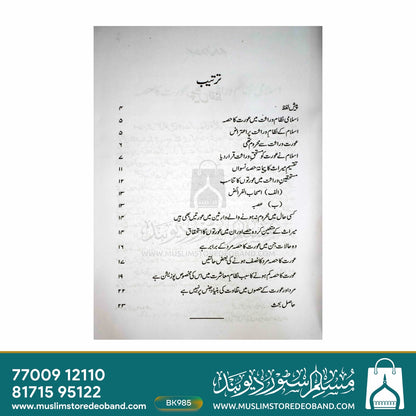 ترتیب
پیش لفظ ۴
اسلامی نظام وراثت میں عورت کا حصہ ۵
اسلام کے نظام وراثت پر اعتراض ۵
عورت وراثت سے محروم تھی ۶
اسلام نے عورت کو مستحق وراثت قرار دیا ۷
تقسیم میراث کا پیمانہ حصہ نسواں ۱۱
مستحقین وراثت میں عورتوں کا تناسب ۱۲
(الف) اصحاب الفرائض ۱۳
(ب) عصبہ ۱۳
کسی حال میں محروم نہ ہونے والے وارثین میں عورتیں بھی ہیں ۱۳
میراث کے متعین کردہ حصے اور ان میں عورتوں کا استحقاق ۱۴
وہ حالات جن میں عورت کا حصہ مرد کے برابر ہے ۱۶
عورت کا حصہ مرد کا نصف ہونے کی بعض حالتیں ۱۷
عورت کا حصہ کم ہونے کا سبب نظام معاشرت میں اس کی مخصوص پوزیشن ہے ۱۹
مرد اور عورت کے حصوں میں تفاوت کی بنیاد جنس پر نہیں ہے ۲۲
حاصل بحث ۲۳
مسلم اسٹور دیوبند
WWW.MUSLIMSTOREDEOBAND.COM
77009 12110
81715 95122
BK985
مسلم اسٹور دیوبند
www.muslimstoredeoband.com